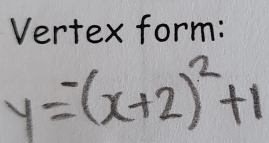 Vertex form:
y=-(x+2)²+1